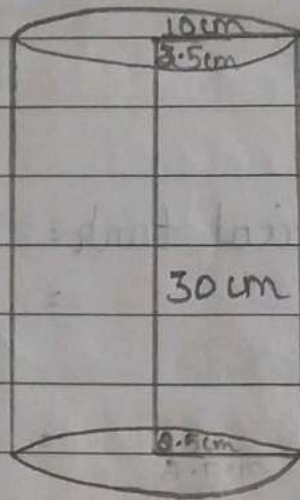 10cm
3.5cm
30 cm
3.5cm